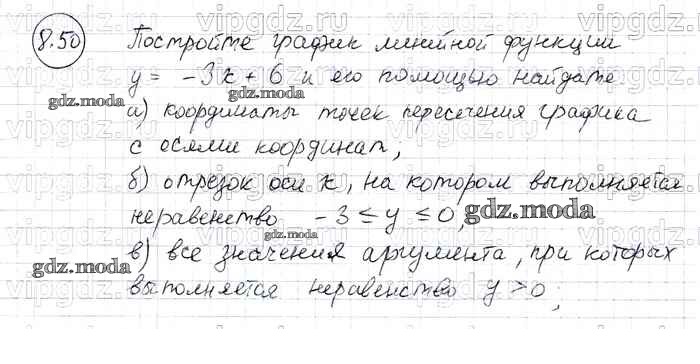 8.50 Постройте график линейной функции
y = -3x + 6 и его помощью найдите
gdz.moda
а) координаты точек пересечения графика
с осями координат;
б) отрезок оси x, на котором выполняется
неравенство -3 ≤ y ≤ 0, gdz.moda
gdz.moda в) все значения аргумента, при которых
выполняется неравенство y > 0;